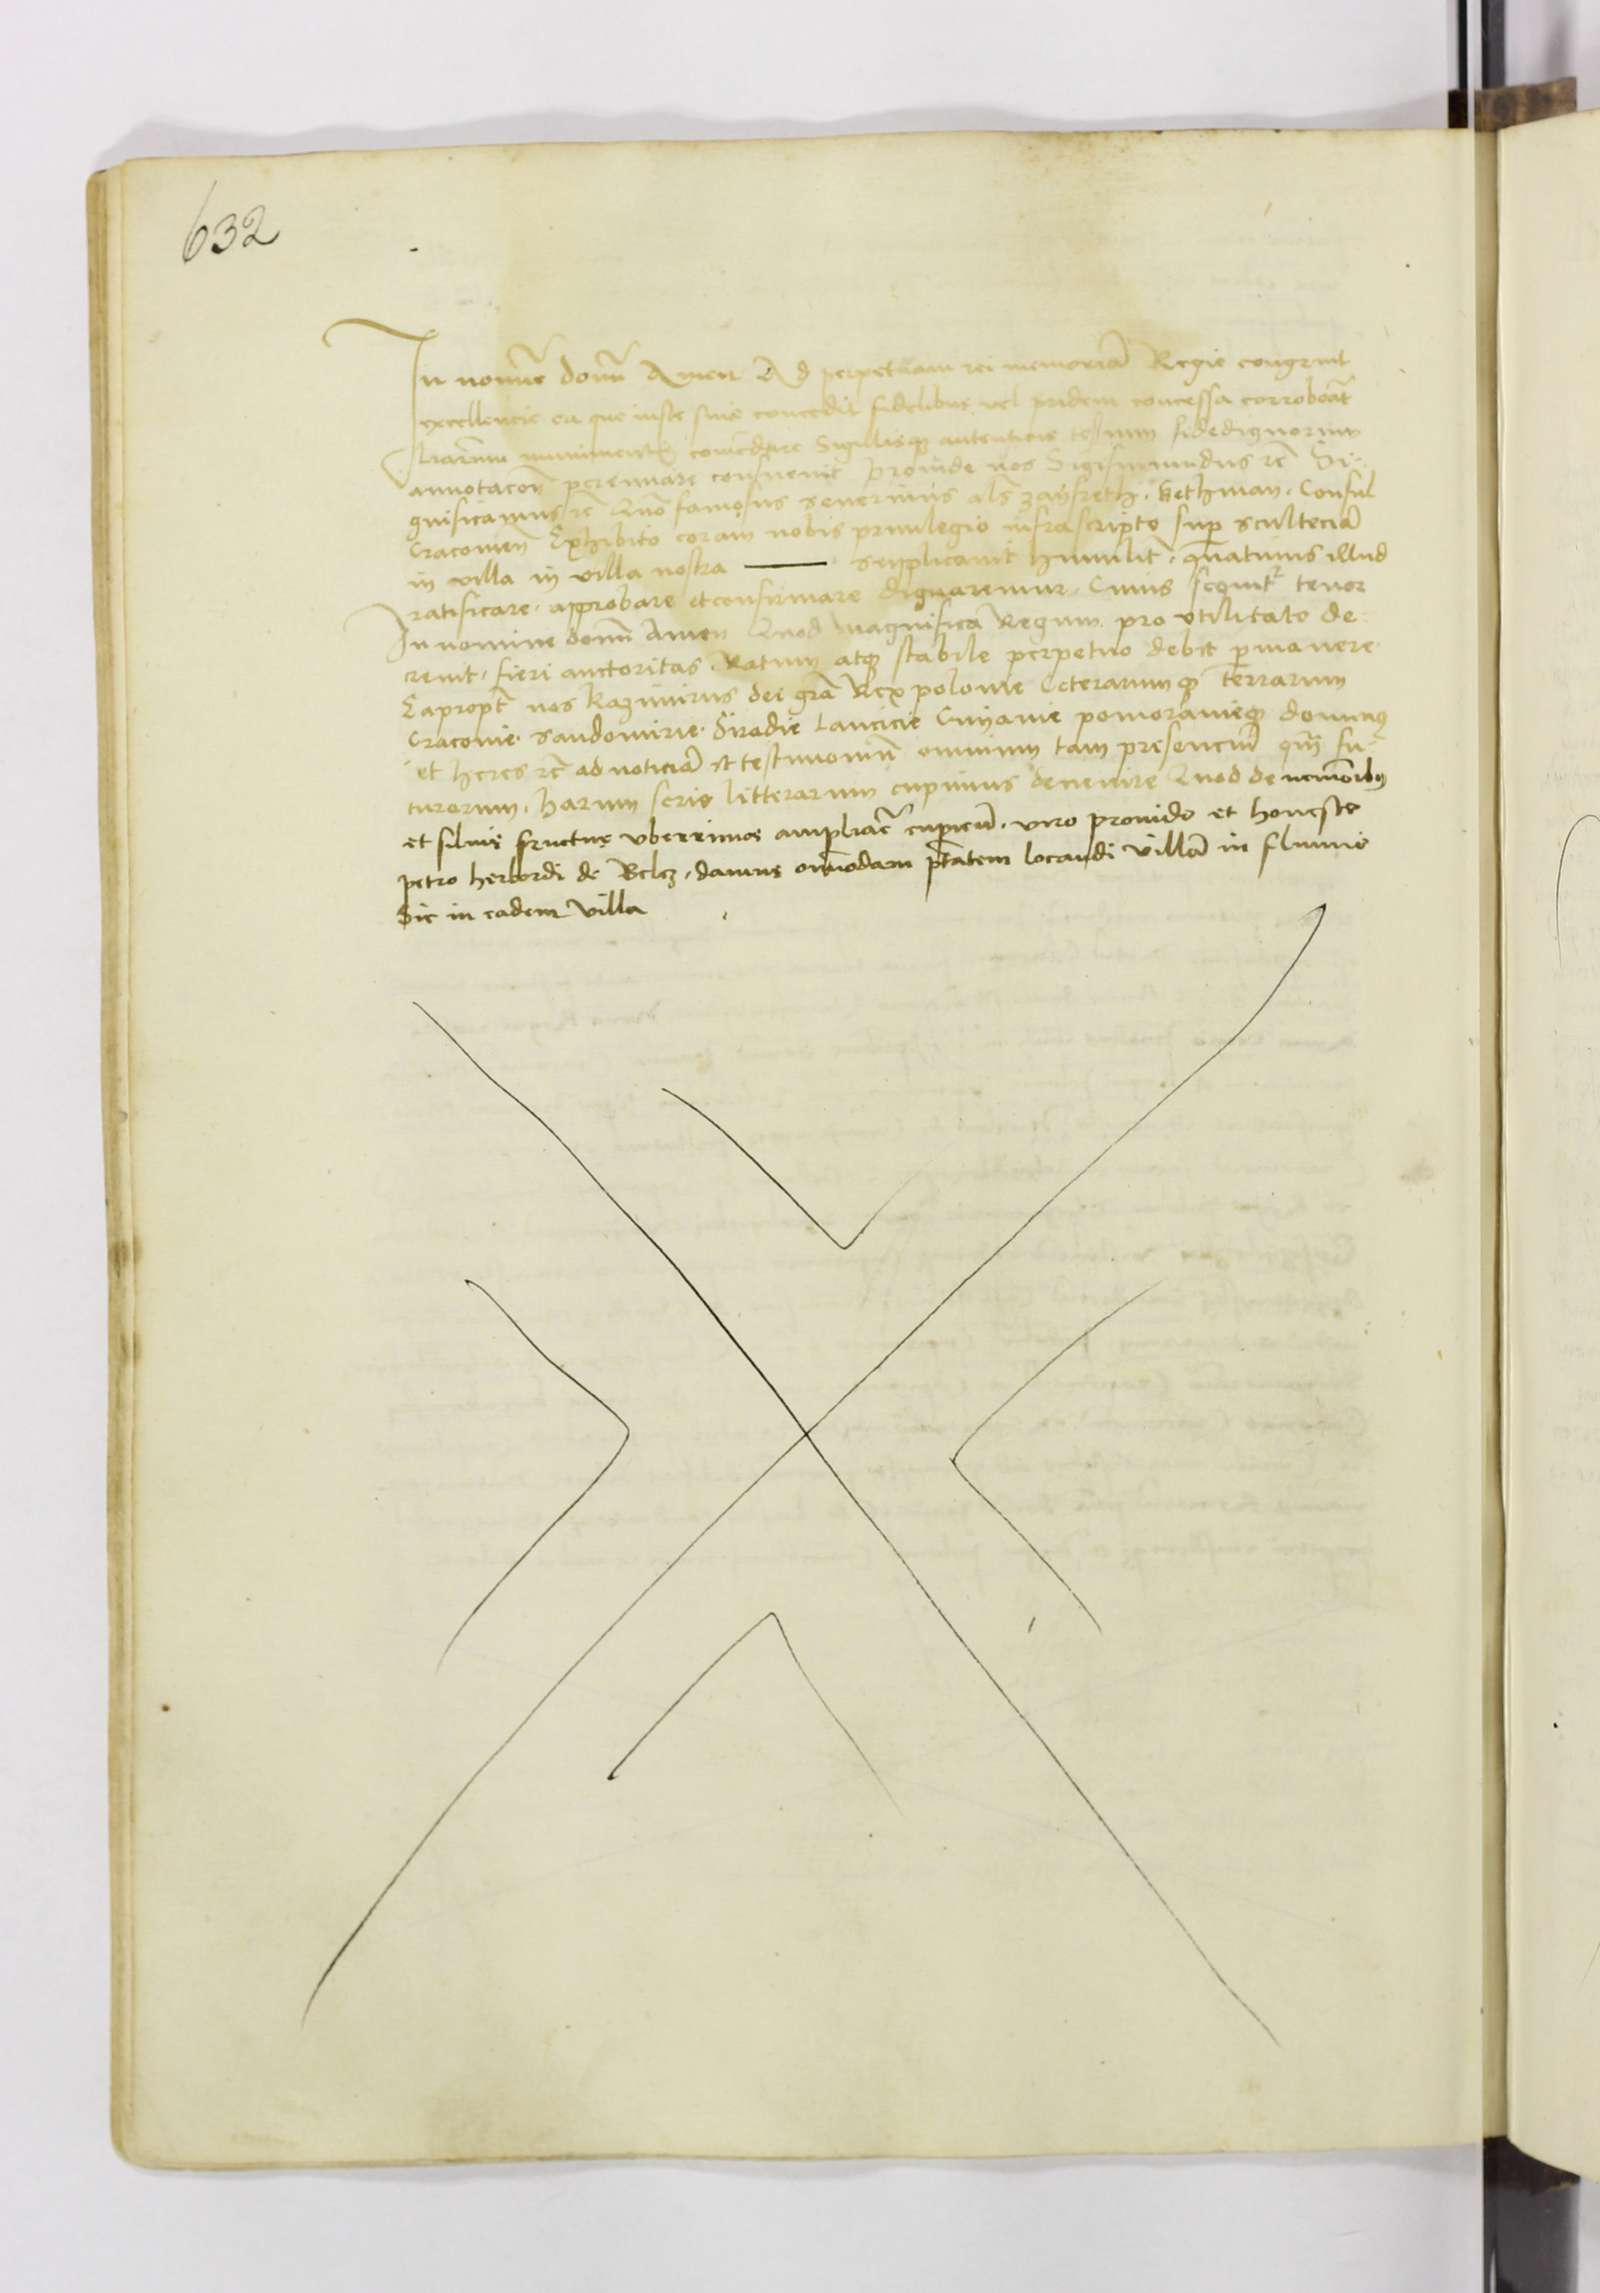 632
In nomīe domī Amen Ad perpetuam rei memoriā Regie congruit
excellencie ea que iuste suis concedit fidelibus vel pridem concessa corroborāt
lrarum munimentis comēdare Sigillisqȝ autenticis testium fidedignorum
annotacōn perennare convenit Proinde nos Sigismundus rc̄ Si-
gnificamus rc̄ Quō famosus severinus als̄ zayfreth. Bethman. Consul
Cracovien̄ Exhibito coram nobis privilegio infrascripto sup scultetiā
in villa in villa nostra ——— supplicavit humilit̄. quatinus illud
ratificare. approbare et confirmare dignaremur. Cuius sequit^r tenor
In nomine domī Amen Quod magnifica Regum pro utilitate de-
crevit. fieri auctoritas. Ratum atqȝ stabile perpetuo debet pmanere.
Eapropt̄ nos kazimirus dei grā Rex polonie Ceterarumqȝ terrarum
Cracovie. Sandomirie. Siradie Lancicie Cuyavie pomoranieqȝ dominqȝ
et heres rc̄ ad noticiā et testimoniū omnium tam presenciū qm̄ fu-
turorum. harum serie litterarum cupimus devenire Quod de nemoribȝ
et silvis fructus uberrimos ampliac̄ cupienū. viro provido et honesto
petro herbordi de Belcz. damus om̄imodam ptātem locandi villā in fluvio
Sic in eadem villa